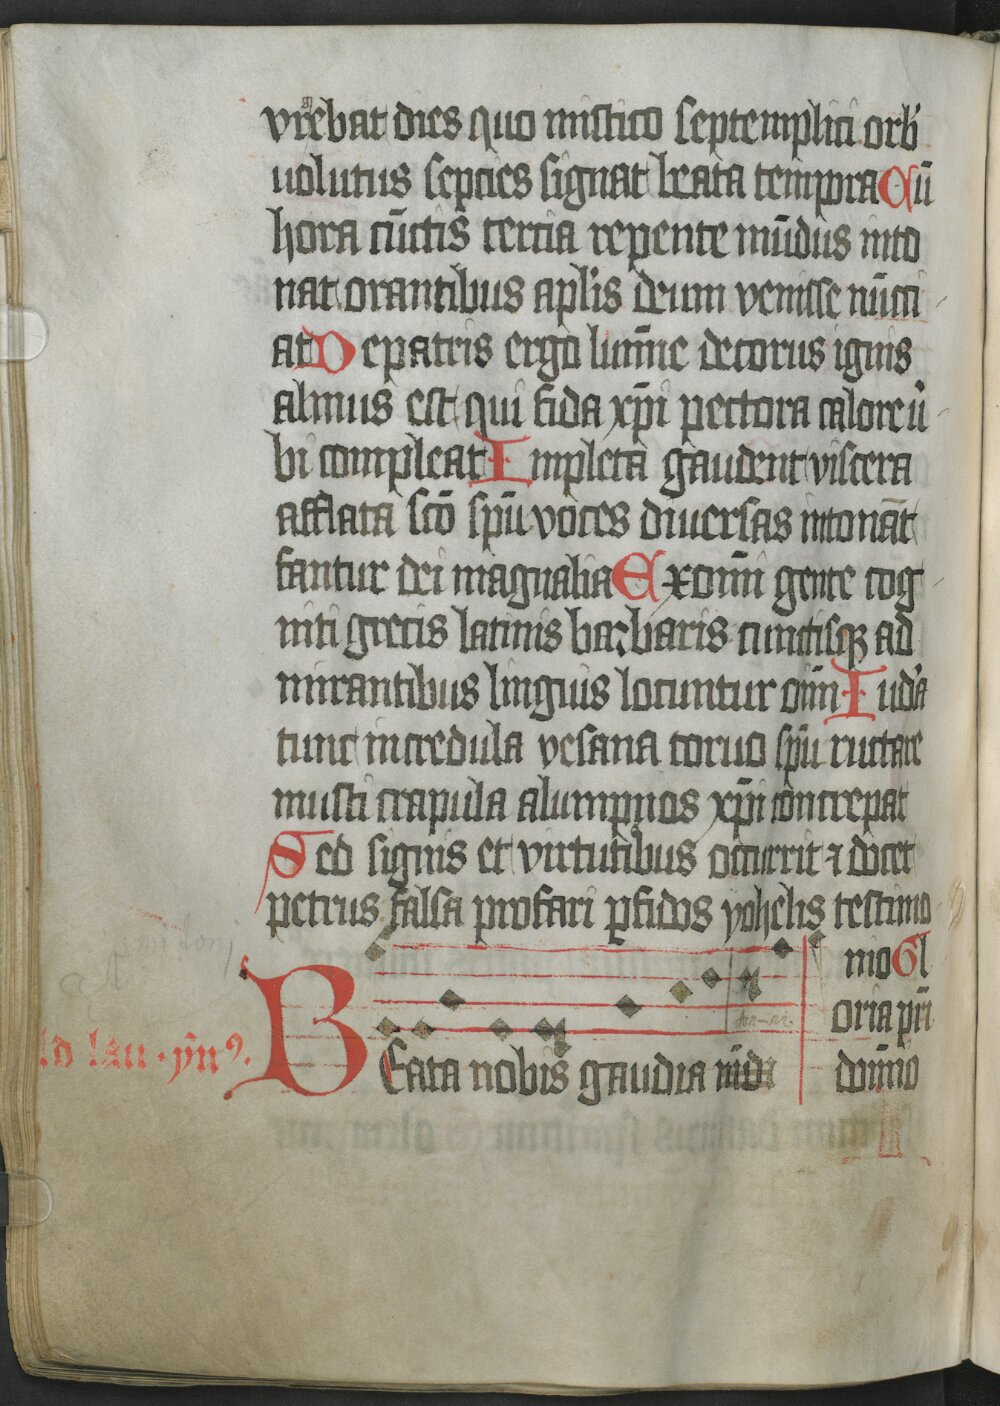 vrͣebat dies quo mistico septemplici orb᷑
uolutus septies signat beata tempora Cū
hora cūctis tercia repente mūdus into
nat orantibus apl'is deum venisse nūcci
at De patris ergo lumīe decorus ignis
almus est qui fida xp̄i pectora calore ū
bi compleat Impleta gaudent viscera
afflata scō sp̄u voces diuersas intonāt
fantur dei magnalia Ex om̄i gente cog
niti grecis latinis barbaris cunctisqꝫ ad
mirantibus linguis locuntur om̄n Iud'a
tunc incredula vesana toruo sp̄u ructare
musti crapula alumpnos xp̄i concrepat
Sed signis et virtutibus occurrit ⁊ docet
petrus falsa profari ꝑfidos yohelis testimo
nio Gl
oria pr̄i
domīo
ad lau · ỹnꝰ.
Beata nobis gaudia